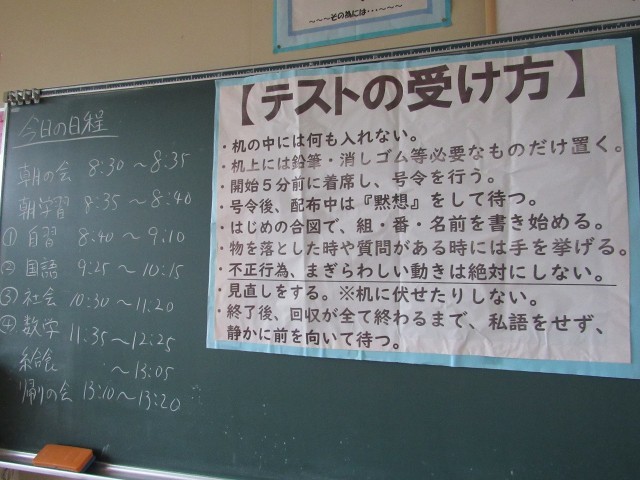 ～～～その為には・・・、～～～
今日の日程
朝の会 8:30～8:35
朝学習 8:35～8:40
① 自習 8:40～9:10
② 国語 9:25～10:15
③ 社会 10:30～11:20
④ 数学 11:35～12:25
給食 ～13:05
帰りの会 13:10～13:20
【テストの受け方】
・机の中には何も入れない。
・机上には鉛筆・消しゴム等必要なものだけ置く。
・開始５分前に着席し、号令を行う。
・号令後、配布中は『黙想』をして待つ。
・はじめの合図で、組・番・名前を書き始める。
・物を落とした時や質問がある時には手を挙げる。
・不正行為、まぎらわしい動きは絶対にしない。
・見直しをする。※机に伏せたりしない。
・終了後、回収が全て終わるまで、私語をせず、
静かに前を向いて待つ。